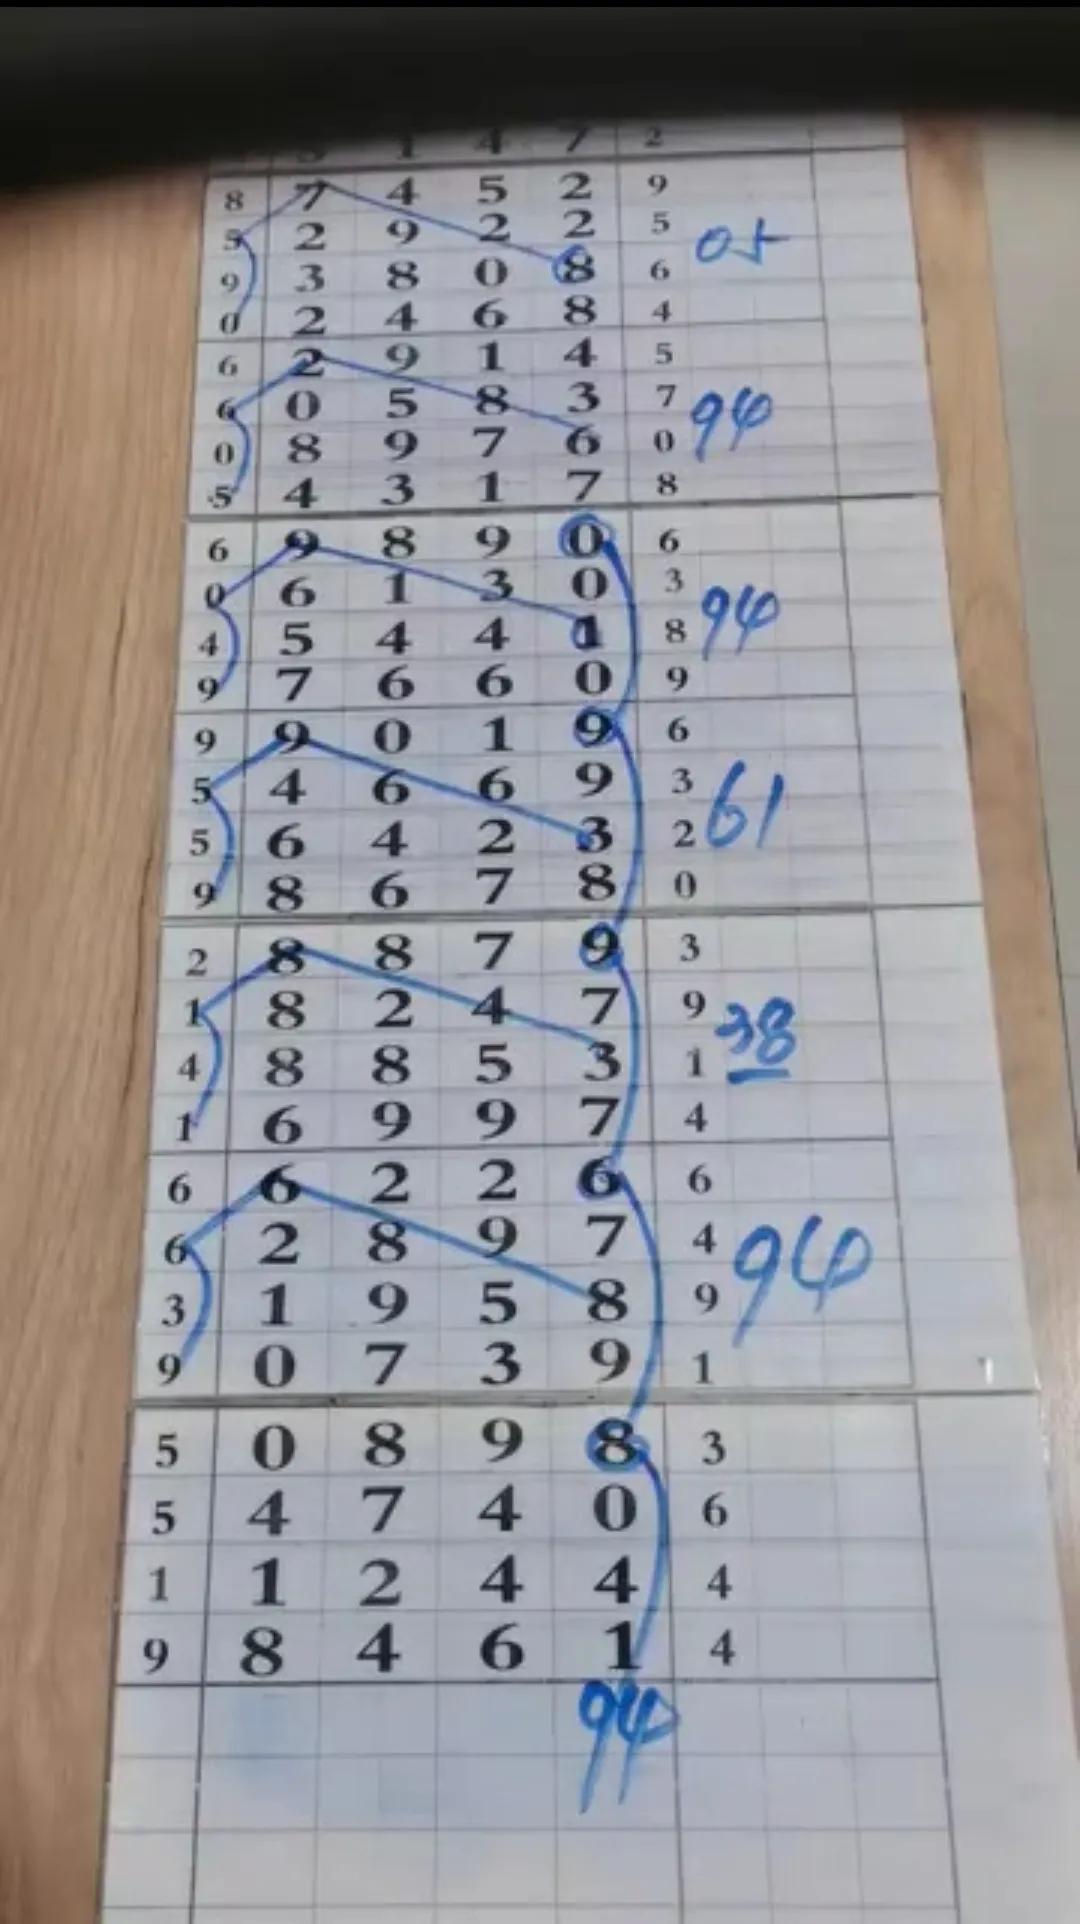 1 4 7 2
8 7 4 5 2 9
5 2 9 2 2 5 05
9 3 8 0 8 6
0 2 4 6 8 4
6 2 9 1 4 5
6 0 5 8 3 7 94
0 8 9 7 6 0
5 4 3 1 7 8
6 9 8 9 0 6
0 6 1 3 0 3 94
4 5 4 4 1 8
9 7 6 6 0 9
9 9 0 1 9 6
5 4 6 6 9 3 61
5 6 4 2 3 2
9 8 6 7 8 0
2 8 8 7 9 3
1 8 2 4 7 9 38
4 8 8 5 3 1
1 6 9 9 7 4
6 6 2 2 6 6
6 2 8 9 7 4 94
3 1 9 5 8 9
9 0 7 3 9 1
5 0 8 9 8 3
5 4 7 4 0 6
1 1 2 4 4 4
9 8 4 6 1 4
94